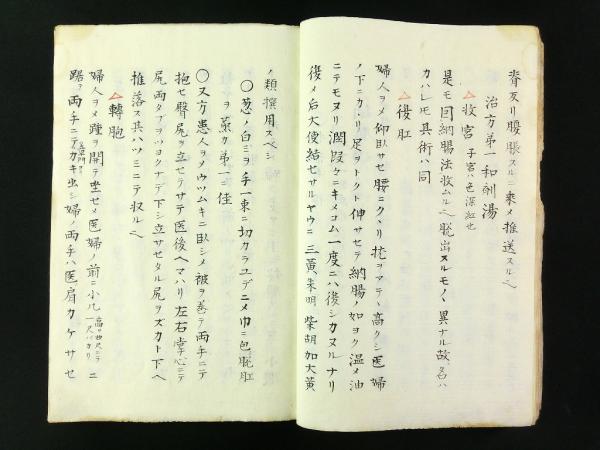 脊反リ腰脹スルニ乗メ推送スルヘ
治方第一和剤湯
△收宮 子宮ハ色深紅也
是モ回納腸法收ムルヘ脱出スルモノヽ異ナル故名ハ
カハレモ其術ハ同
△後肛
婦人ヲメ仰臥サセ腰ニクヽリ枕ヲマテヽ高クシ医婦
ノ下ニカヽリ足ヲトクト伸サセテ納腸ノ如ヨク温メ油
ニテモヌリ潤
後メ后大便結セサルヤウニ三黄朱明柴胡加大黄
ノ類撰用スベシ
〇葱ノ白ミヲ手一束ニ切カラユデニメ巾ニ包肛
ヲ薫カ第一ニ佳
〇又方患人ヲメウツムキニ臥シメ被ヲ巻テ両手ニテ
抱セ臀尻ヲ立セテサテ医後ヘマハリ左右掌心ニテ
尻両タブヲツヨクナデ下シ立サセタル尻ヲズカト下ヘ
推落ス其ハツミニテ収ルヘ
△轉胞
婦人ヲメ踵ヲ開テ坐セメ医婦ノ前ニ小几 高サ曲尺ニテ一尺バカリ ニ
踞ヲ両手ニテカキ出シ婦ノ両手ハ医肩カケサセ